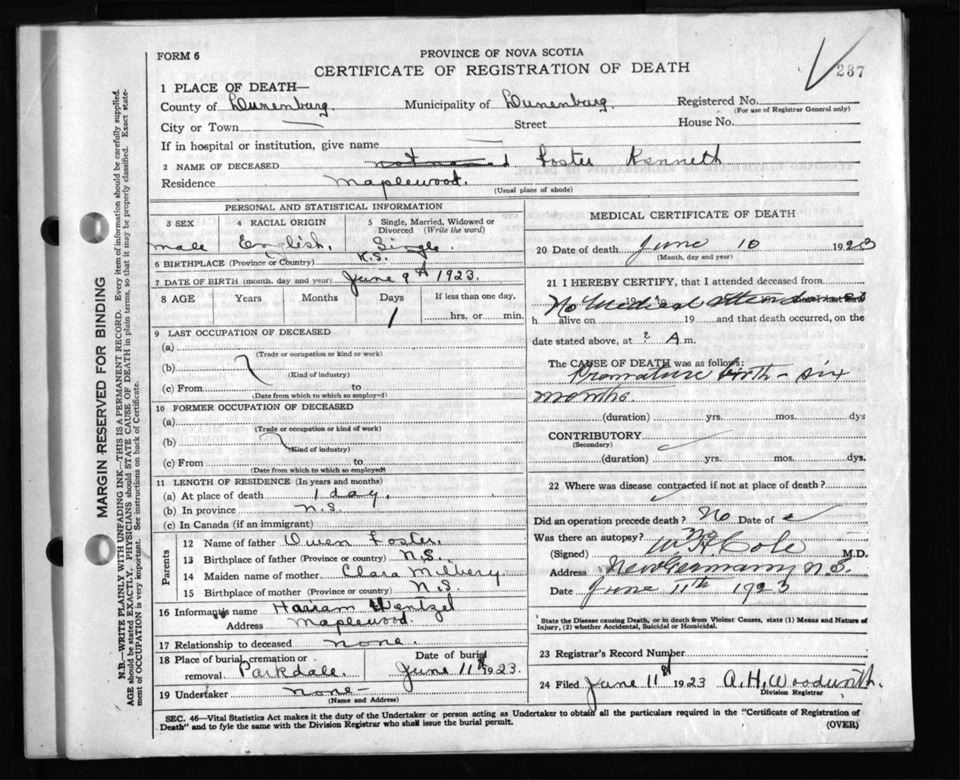 FORM 6
PROVINCE OF NOVA SCOTIA
CERTIFICATE OF REGISTRATION OF DEATH
237
1 PLACE OF DEATH—
County of Lunenburg. Municipality of Lunenburg. Registered No.
(For use of Registrar General only)
City or Town — Street House No.
If in hospital or institution, give name —
2 NAME OF DECEASED not named Foster Kenneth
Residence Maplewood.
(Usual place of abode)
PERSONAL AND STATISTICAL INFORMATION
3 SEX 4 RACIAL ORIGIN 5 Single, Married, Widowed or Divorced (Write the word)
male English. Single.
6 BIRTHPLACE (Province or Country) N.S.
7 DATE OF BIRTH (month, day and year) June 9th 1923.
8 AGE Years Months Days If less than one day,
1 hrs. or min.
9 LAST OCCUPATION OF DECEASED
(a)
(Trade or occupation or kind or work)
(b)
(Kind of industry)
(c) From to
(Date from which to which so employed)
10 FORMER OCCUPATION OF DECEASED
(a)
(Trade or occupation or kind of work)
(b)
(Kind of industry)
(c) From to
(Date from which to which so employed)
11 LENGTH OF RESIDENCE (In years and months)
(a) At place of death 1 day.
(b) In province N.S.
(c) In Canada (if an immigrant)
Parents
12 Name of father Owen Foster.
13 Birthplace of father (Province or country) N.S.
14 Maiden name of mother Clara Milbery
15 Birthplace of mother (Province or country) N.S
16 Informant's name Wentzel
Address Maplewood.
17 Relationship to deceased none.
18 Place of burial, cremation or removal. Parkdale. Date of burial June 11th 1923.
19 Undertaker none—
(Name and Address)
MEDICAL CERTIFICATE OF DEATH
20 Date of death June 10 1923
(Month, day and year)
21 I HEREBY CERTIFY, that I attended deceased from
No Medical attendance
h alive on 19 and that death occurred, on the
date stated above, at 2 A m.
The CAUSE OF DEATH was as follows:
Premature birth - six
months.
(duration) yrs. mos. dys
CONTRIBUTORY
(Secondary)
(duration) yrs. mos. dys.
22 Where was disease contracted if not at place of death?
Did an operation precede death? No Date of
Was there an autopsy? no
(Signed) W H Cole M.D.
Address New Germany N.S.
Date June 11th 1923
¹ State the Disease causing Death, or in death from Violent Causes, state (1) Means and Nature of Injury, (2) whether Accidental, Suicidal or Homicidal.
23 Registrar's Record Number
24 Filed June 11th 1923 A.H. Woodworth.
Division Registrar
SEC. 46—Vital Statistics Act makes it the duty of the Undertaker or person acting as Undertaker to obtain all the particulars required in the "Certificate of Registration of
Death" and to fyle the same with the Division Registrar who shall issue the burial permit.
(OVER)
MARGIN RESERVED FOR BINDING
N.B.—WRITE PLAINLY WITH UNFADING INK—THIS IS A PERMANENT RECORD. Every item of information should be carefully supplied.
AGE should be stated EXACTLY. PHYSICIANS should STATE CAUSE OF DEATH in plain terms, so that it may be properly classified. Exact state-
ment of OCCUPATION is very important. See instructions on back of Certificate.